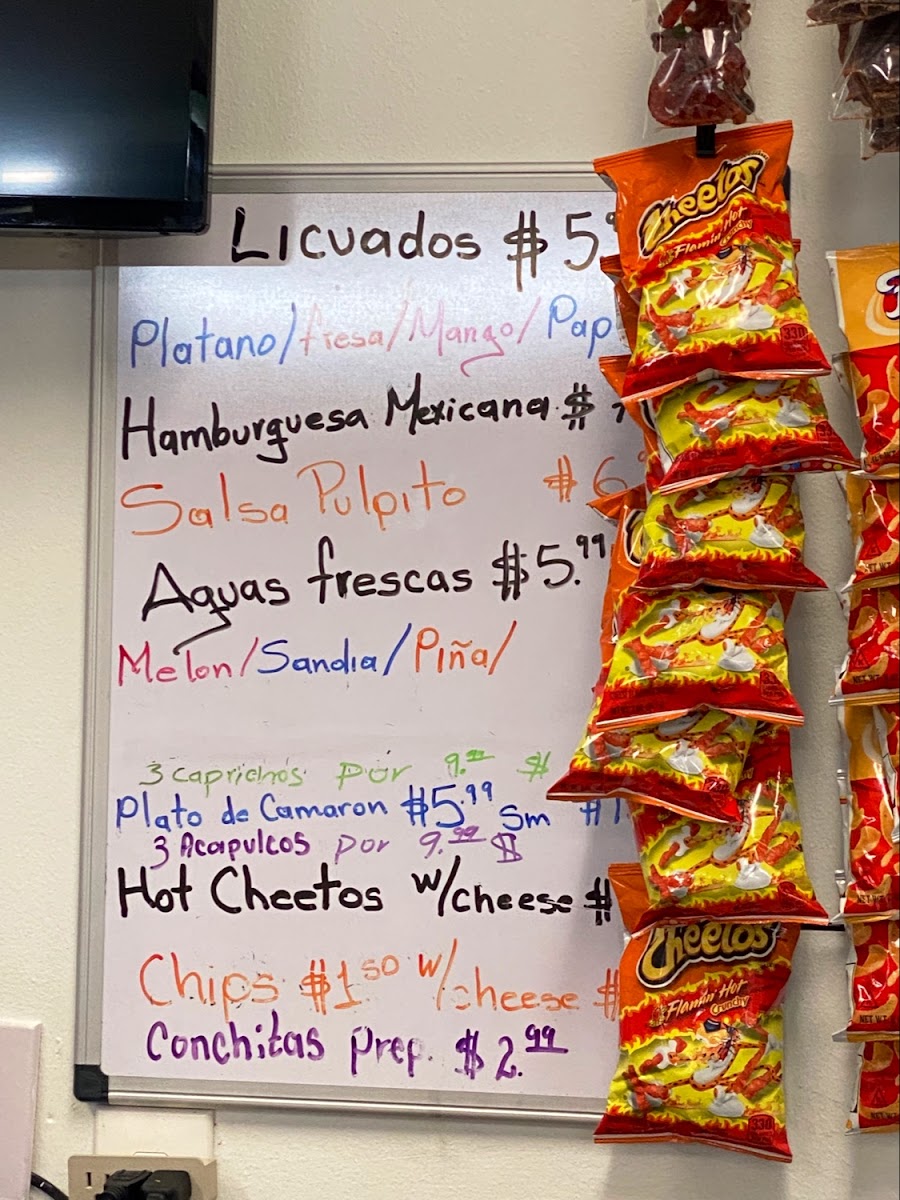 Licuados $5.9
Platano/fresa/Mango/Pap
Hamburguesa Mexicana $
Salsa Pulpito $6
Aguas frescas $5.99
Melon/Sandia/Piña/
3 caprichos por 9.99 $
Plato de Camaron $5.99 Sm #1
3 Acapulcos por 9.99 $
Hot Cheetos w/cheese $
Chips $1.50 w/cheese $
Conchitas Prep. $2.99
Cheetos
Flamin' Hot
Crunchy
330
Cheetos
Flamin' Hot
Crunchy
330
NET WT
NET WT
NET WT
NET WT